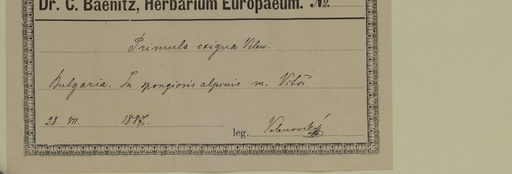 Dr. C. Baenitz, Herbarium Europaeum. No
Primula exigua Velen.
Bulgaria. In spongiosis alpinis m. Vitoš
28. VI. 1887.
leg. Velenovský